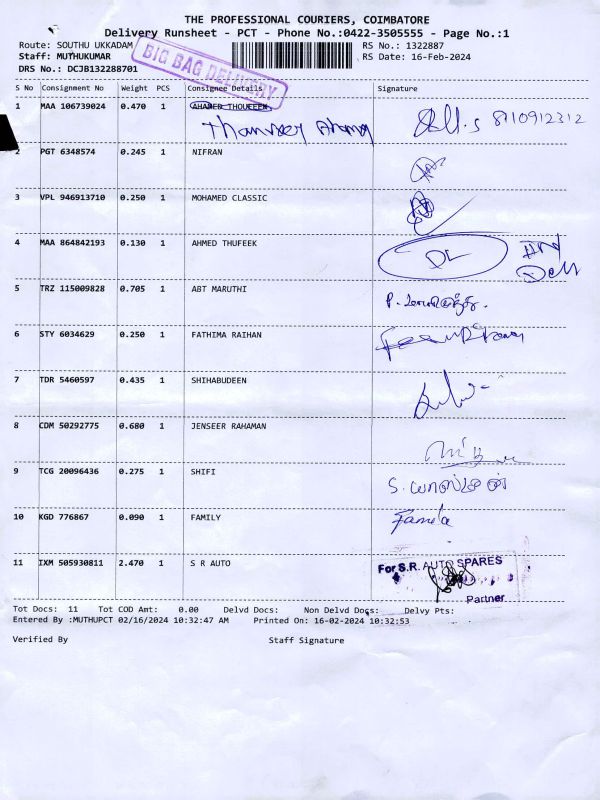 THE PROFESSIONAL COURIERS, COIMBATORE
Delivery Runsheet - PCT - Phone No.:0422-3505555 - Page No.:1
Route: SOUTHU UKKADAM
RS No.: 1322887
Staff: MUTHUKUMAR
RS Date: 16-Feb-2024
DRS No.: DCJB132288701
BIG BAG DELIVERY
S No Consignment No Weight PCS Consignee Details Signature
1 MAA 106739024 0.470 1 AHAMED THOUFEEK
8110912312
2 PGT 6348574 0.245 1 NIFRAN
3 VPL 946913710 0.250 1 MOHAMED CLASSIC
4 MAA 864842193 0.130 1 AHMED THUFEEK
DL
5 TRZ 115009828 0.705 1 ABT MARUTHI
6 STY 6034629 0.250 1 FATHIMA RAIHAN
7 TDR 5460597 0.435 1 SHIHABUDEEN
8 CDM 50292775 0.680 1 JENSEER RAHAMAN
9 TCG 20096436 0.275 1 SHIFI
10 KGD 776867 0.090 1 FAMILY
11 IXM 505930811 2.470 1 S R AUTO
For S.R. AUTO SPARES
Partner
Tot Docs: 11 Tot COD Amt: 0.00 Delvd Docs: Non Delvd Docs: Delvy Pts:
Entered By :MUTHUPCT 02/16/2024 10:32:47 AM Printed On: 16-02-2024 10:32:53
Verified By Staff Signature